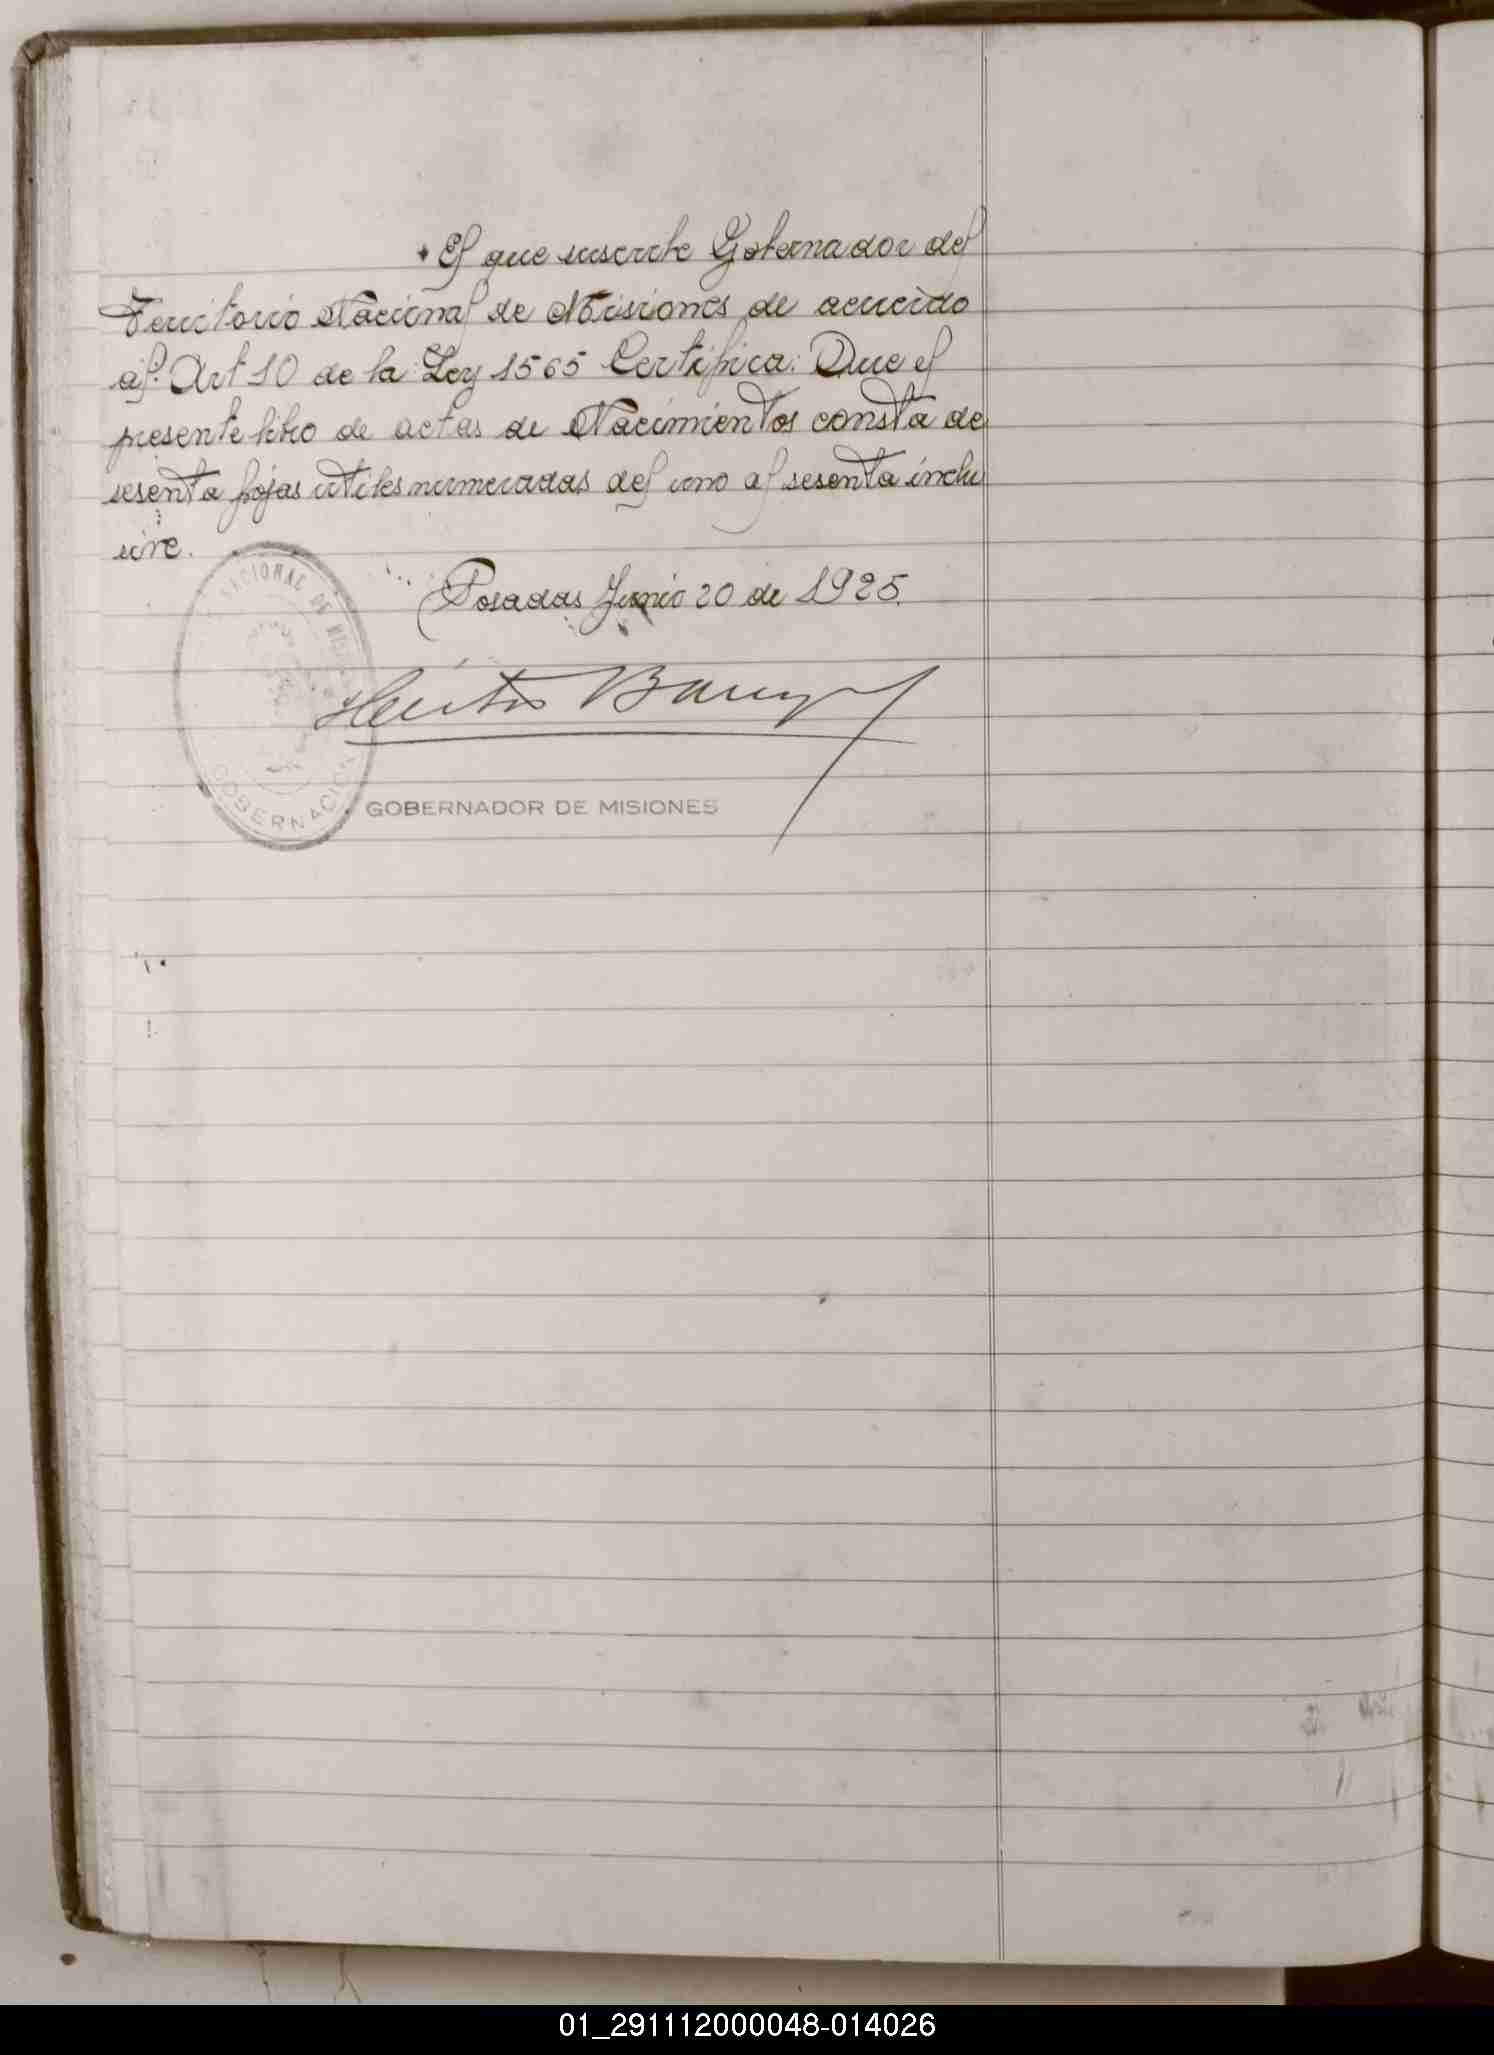 El que suscribe Gobernador del
Territorio Nacional de Misiones de acuerdo
al. Art 10 de la Ley 1565 Certifica: Que el
presente libro de actas de Nacimientos consta de
sesenta fojas utiles numeradas del uno al sesenta inclu
sive.
Posadas Junio 20 de 1925.
NACIONAL DE
Héctor Barreyro
GOBERNACION
GOBERNADOR DE MISIONES
01_291112000048-014026